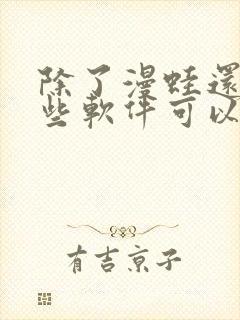 除了漫蛙還
些軟件可以
有吉京子